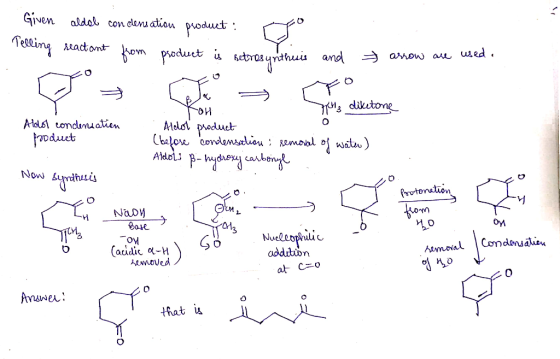 Given aldol condensation product :
Telling reactant from product is retrosynthesis and ⇒ arrow are used.
O
O
β
α
OH
O
CH3
O
diketone
Aldol condensation product
Aldol product
(before condensation : removal of water)
Aldol: β-hydroxy carbonyl
Now synthesis
O
H
CH3
O
NaOH
Base
-OH
(acidic α-H removed)
O
CH2
CH3
O
Nucleophilic addition at C=O
O
O
-
Protonation from H2O
O
H
OH
removal of H2O
Condensation
O
Answer:
O
O
that is
O
O